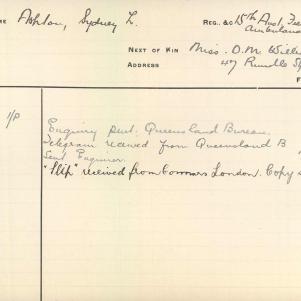 ME Ashton, Sydney L. REG. &C 15th Aust Fd
Ambulan
NEXT OF KIN Miss. O. M. Willi
ADDRESS 47 Rundle St
F
1/P Enquiry sent. Queensland Bureau.
Telegram received from Queensland B
Sent Enquirer.
"Slip" received from Commrs London. Copy